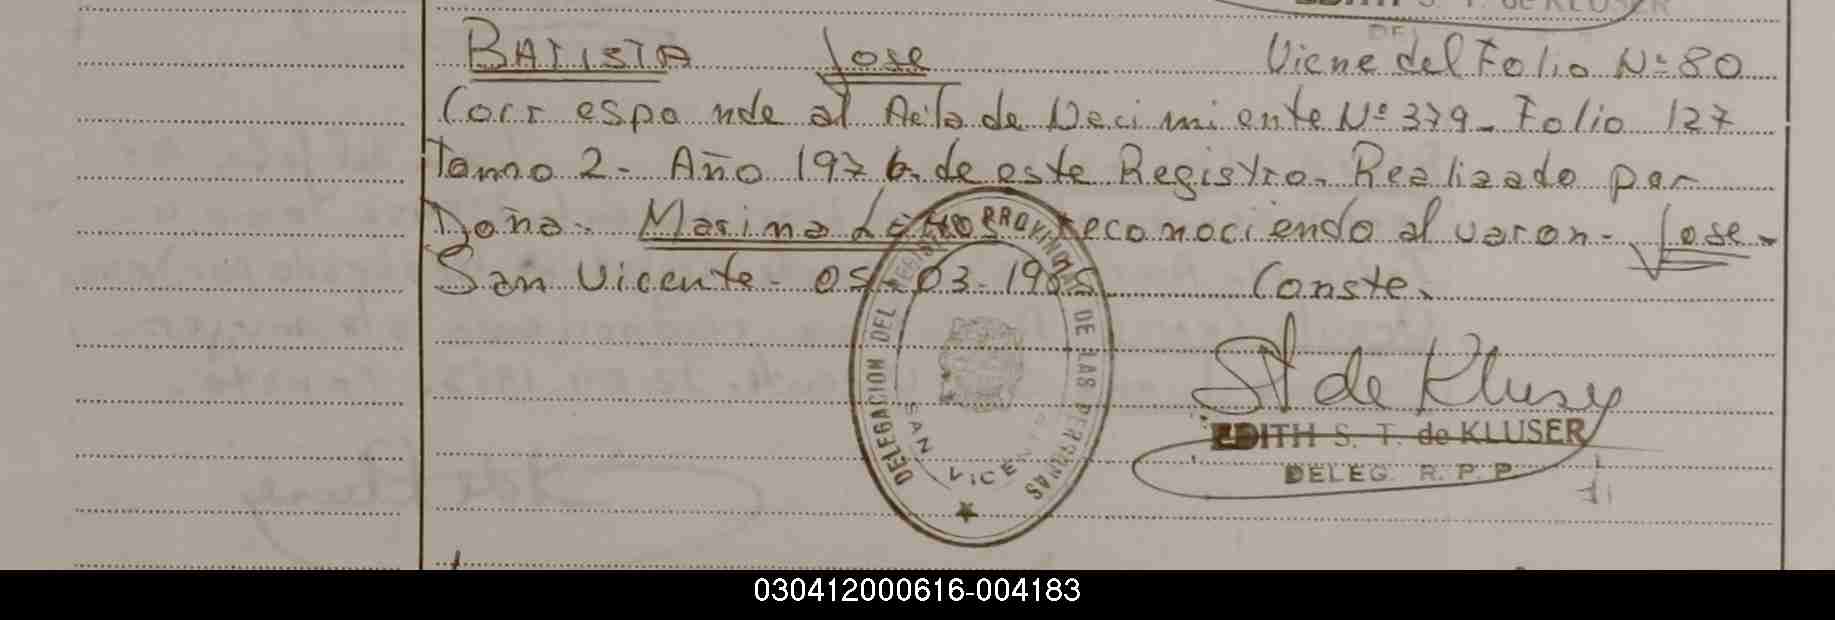 BATISTA Jose Viene del Folio Nº 80
Corresponde al Acta de Nacimiento Nº 379 - Folio 127
Tomo 2 - Año 1976. de este Registro. Realizado por
Doña - Marina reconociendo al varon - Jose -
San Vicente - 05 - 03 - 1985 Conste.
DELEGACION DEL REGISTRO PROVINCIAL DE LAS PERSONAS
SAN VICENTE
St de Kluser
EDITH S. T. de KLUSER
DELEG. R. P. P.
030412000616-004183